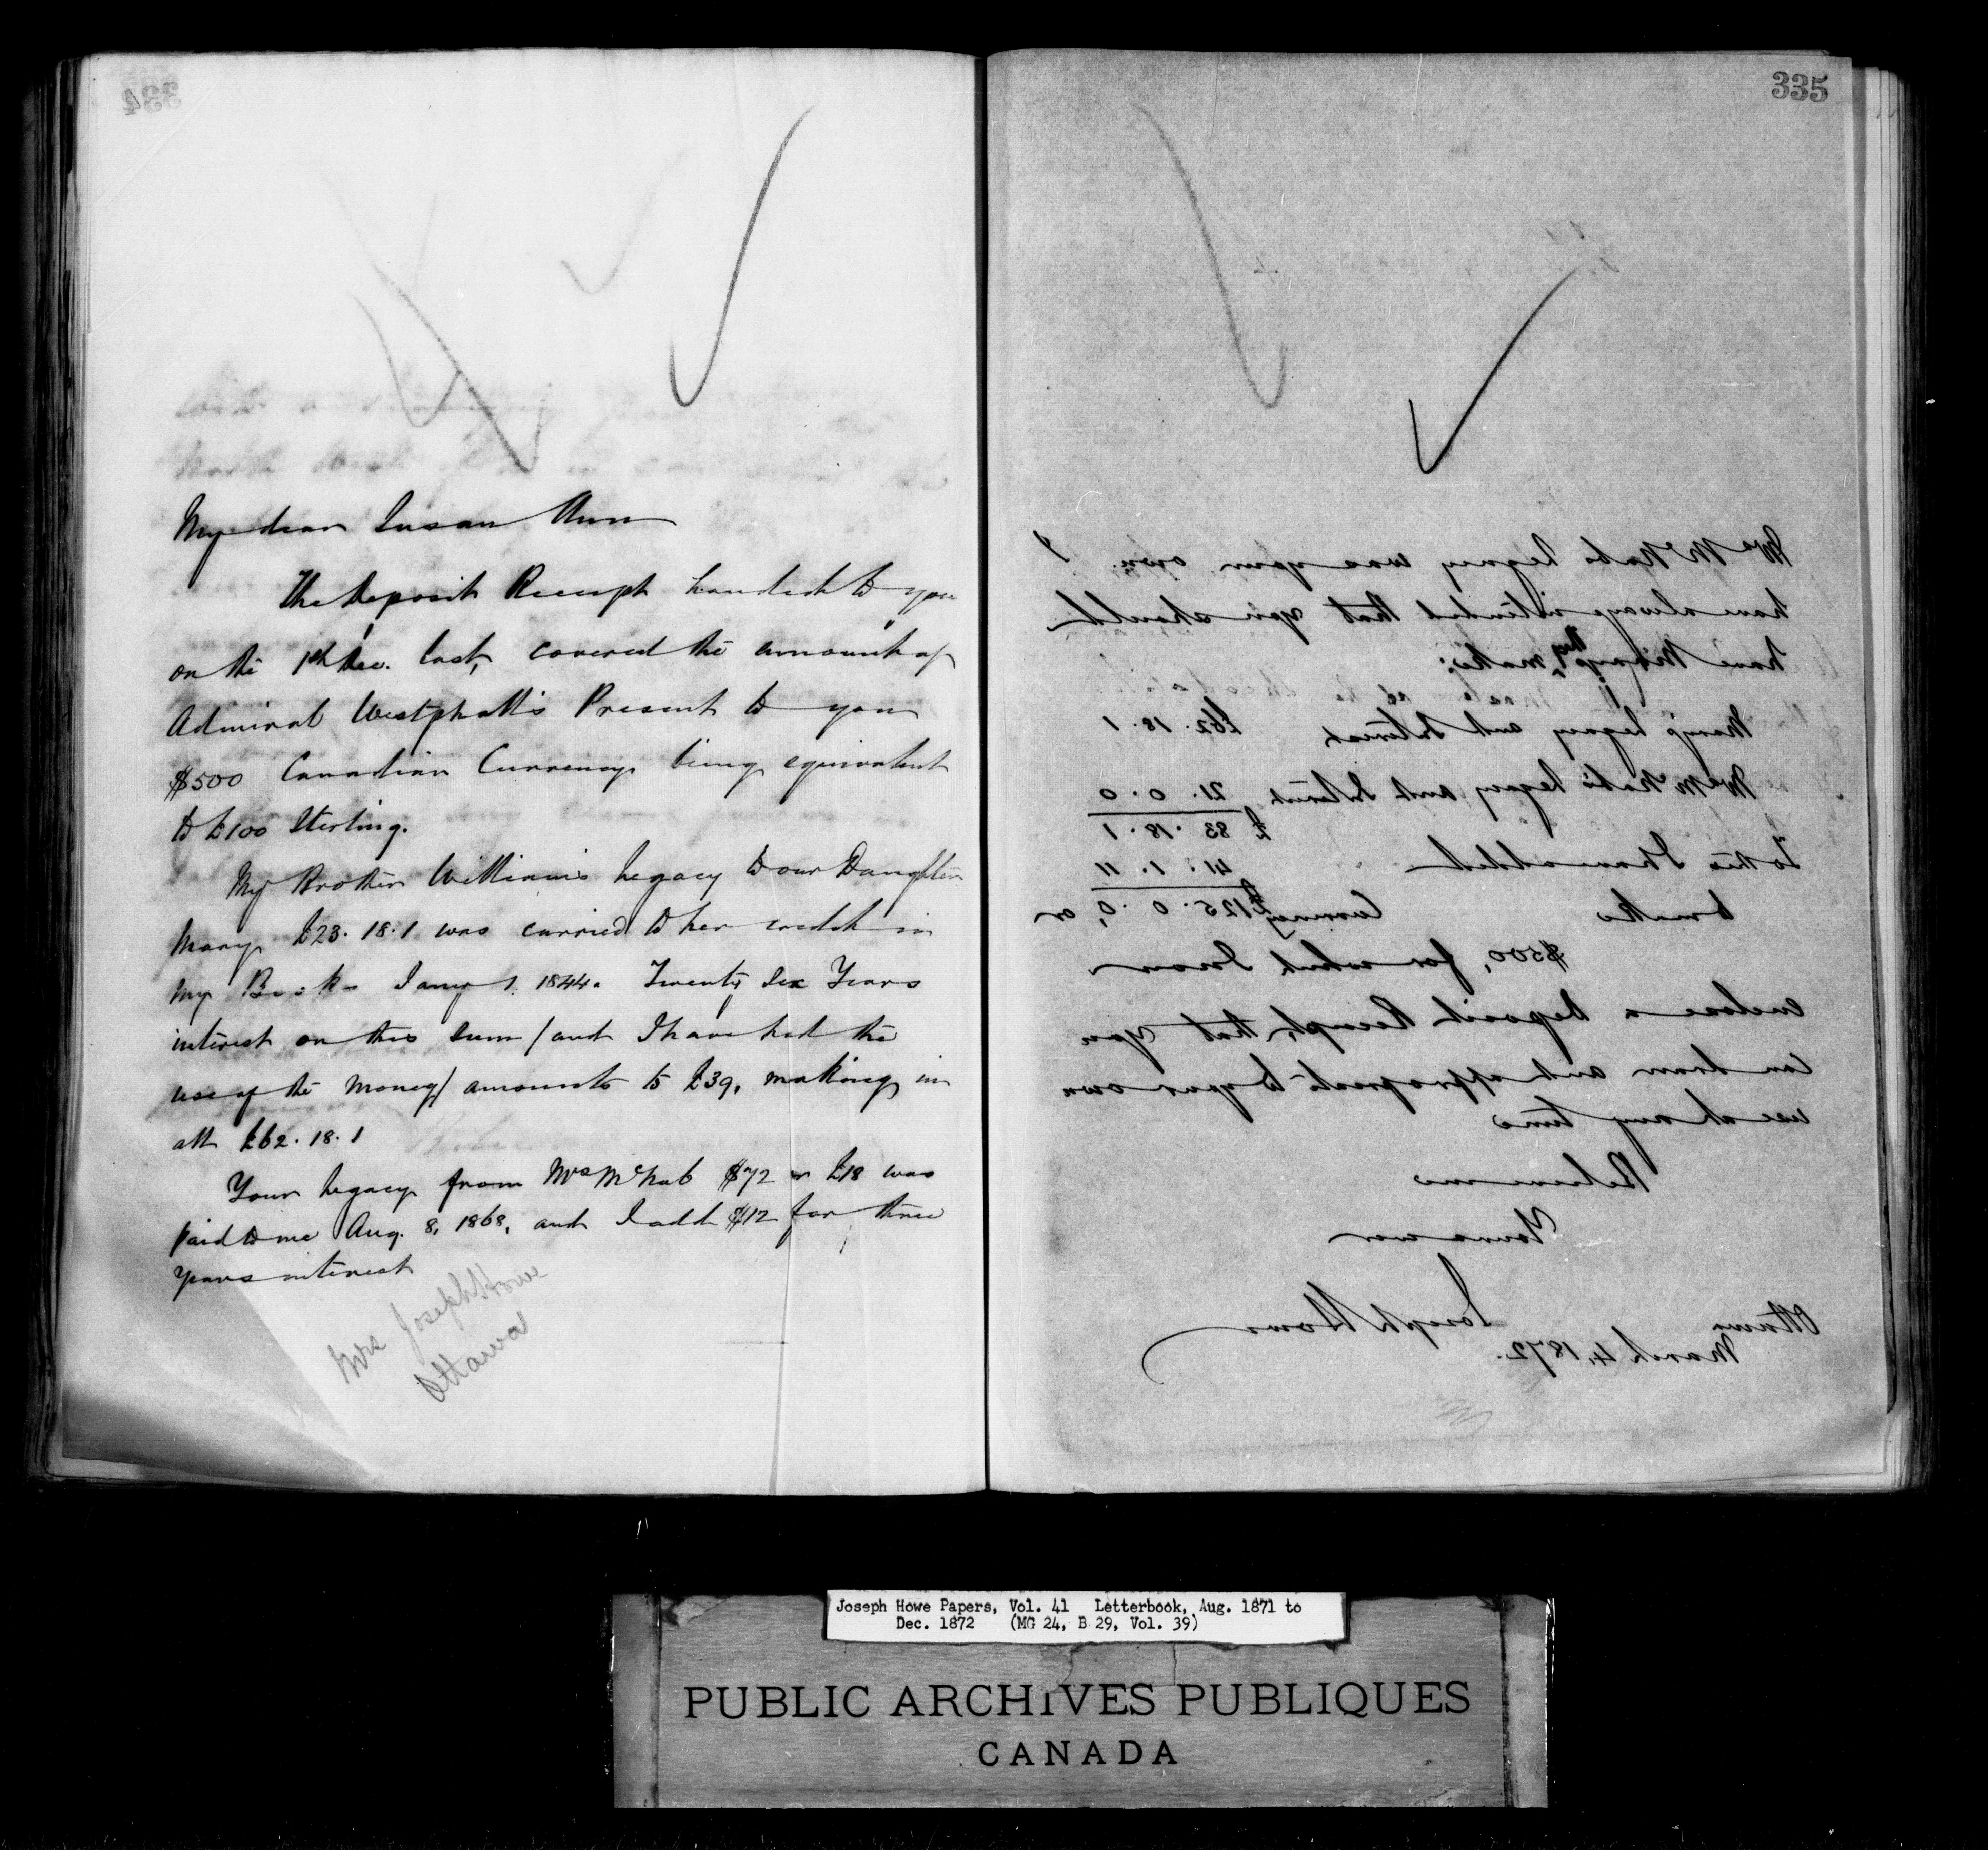 334
My dear Susan Ann
The Deposit Receipt handed to you
on the 1st Dec. last, covered the amount of
Admiral Westphall's Present to you
$500 Canadian Currency being equivalent
to £100 Sterling.
My Brother William's Legacy to our Daughter
Mary £23.18.1 was carried to her credit in
my Books Jany 1. 1844. Twenty Six Years
interest on this Sum / and I have had the
use of the money / amounts to £39, making in
all £62.18.1
Your Legacy from Mrs McNab $72 or £18 was
paid to me Aug. 8, 1868, and I add $12 for three
years interest
Mrs Joseph Howe
Ottawa
335
Mrs McNab's Legacy was your own. I
have always intended that you should
have Mary's they make:
Mary's Legacy and Interest £62.18.1
Mrs McNab's Legacy and Interest 21.0.0
£83.18.1
To this I have added 41.1.11
to make Currency £125.0.0, or
$500, for which I now
enclose a Deposit Receipt, that you
can draw and appropriate to your own
use at any time
Believe me
Yours ever
Joseph Howe
Ottawa
March 4, 1872.
Joseph Howe Papers, Vol. 41 Letterbook, Aug. 1871 to
Dec. 1872 (MG 24, B 29, Vol. 39)
PUBLIC ARCHIVES PUBLIQUES
CANADA